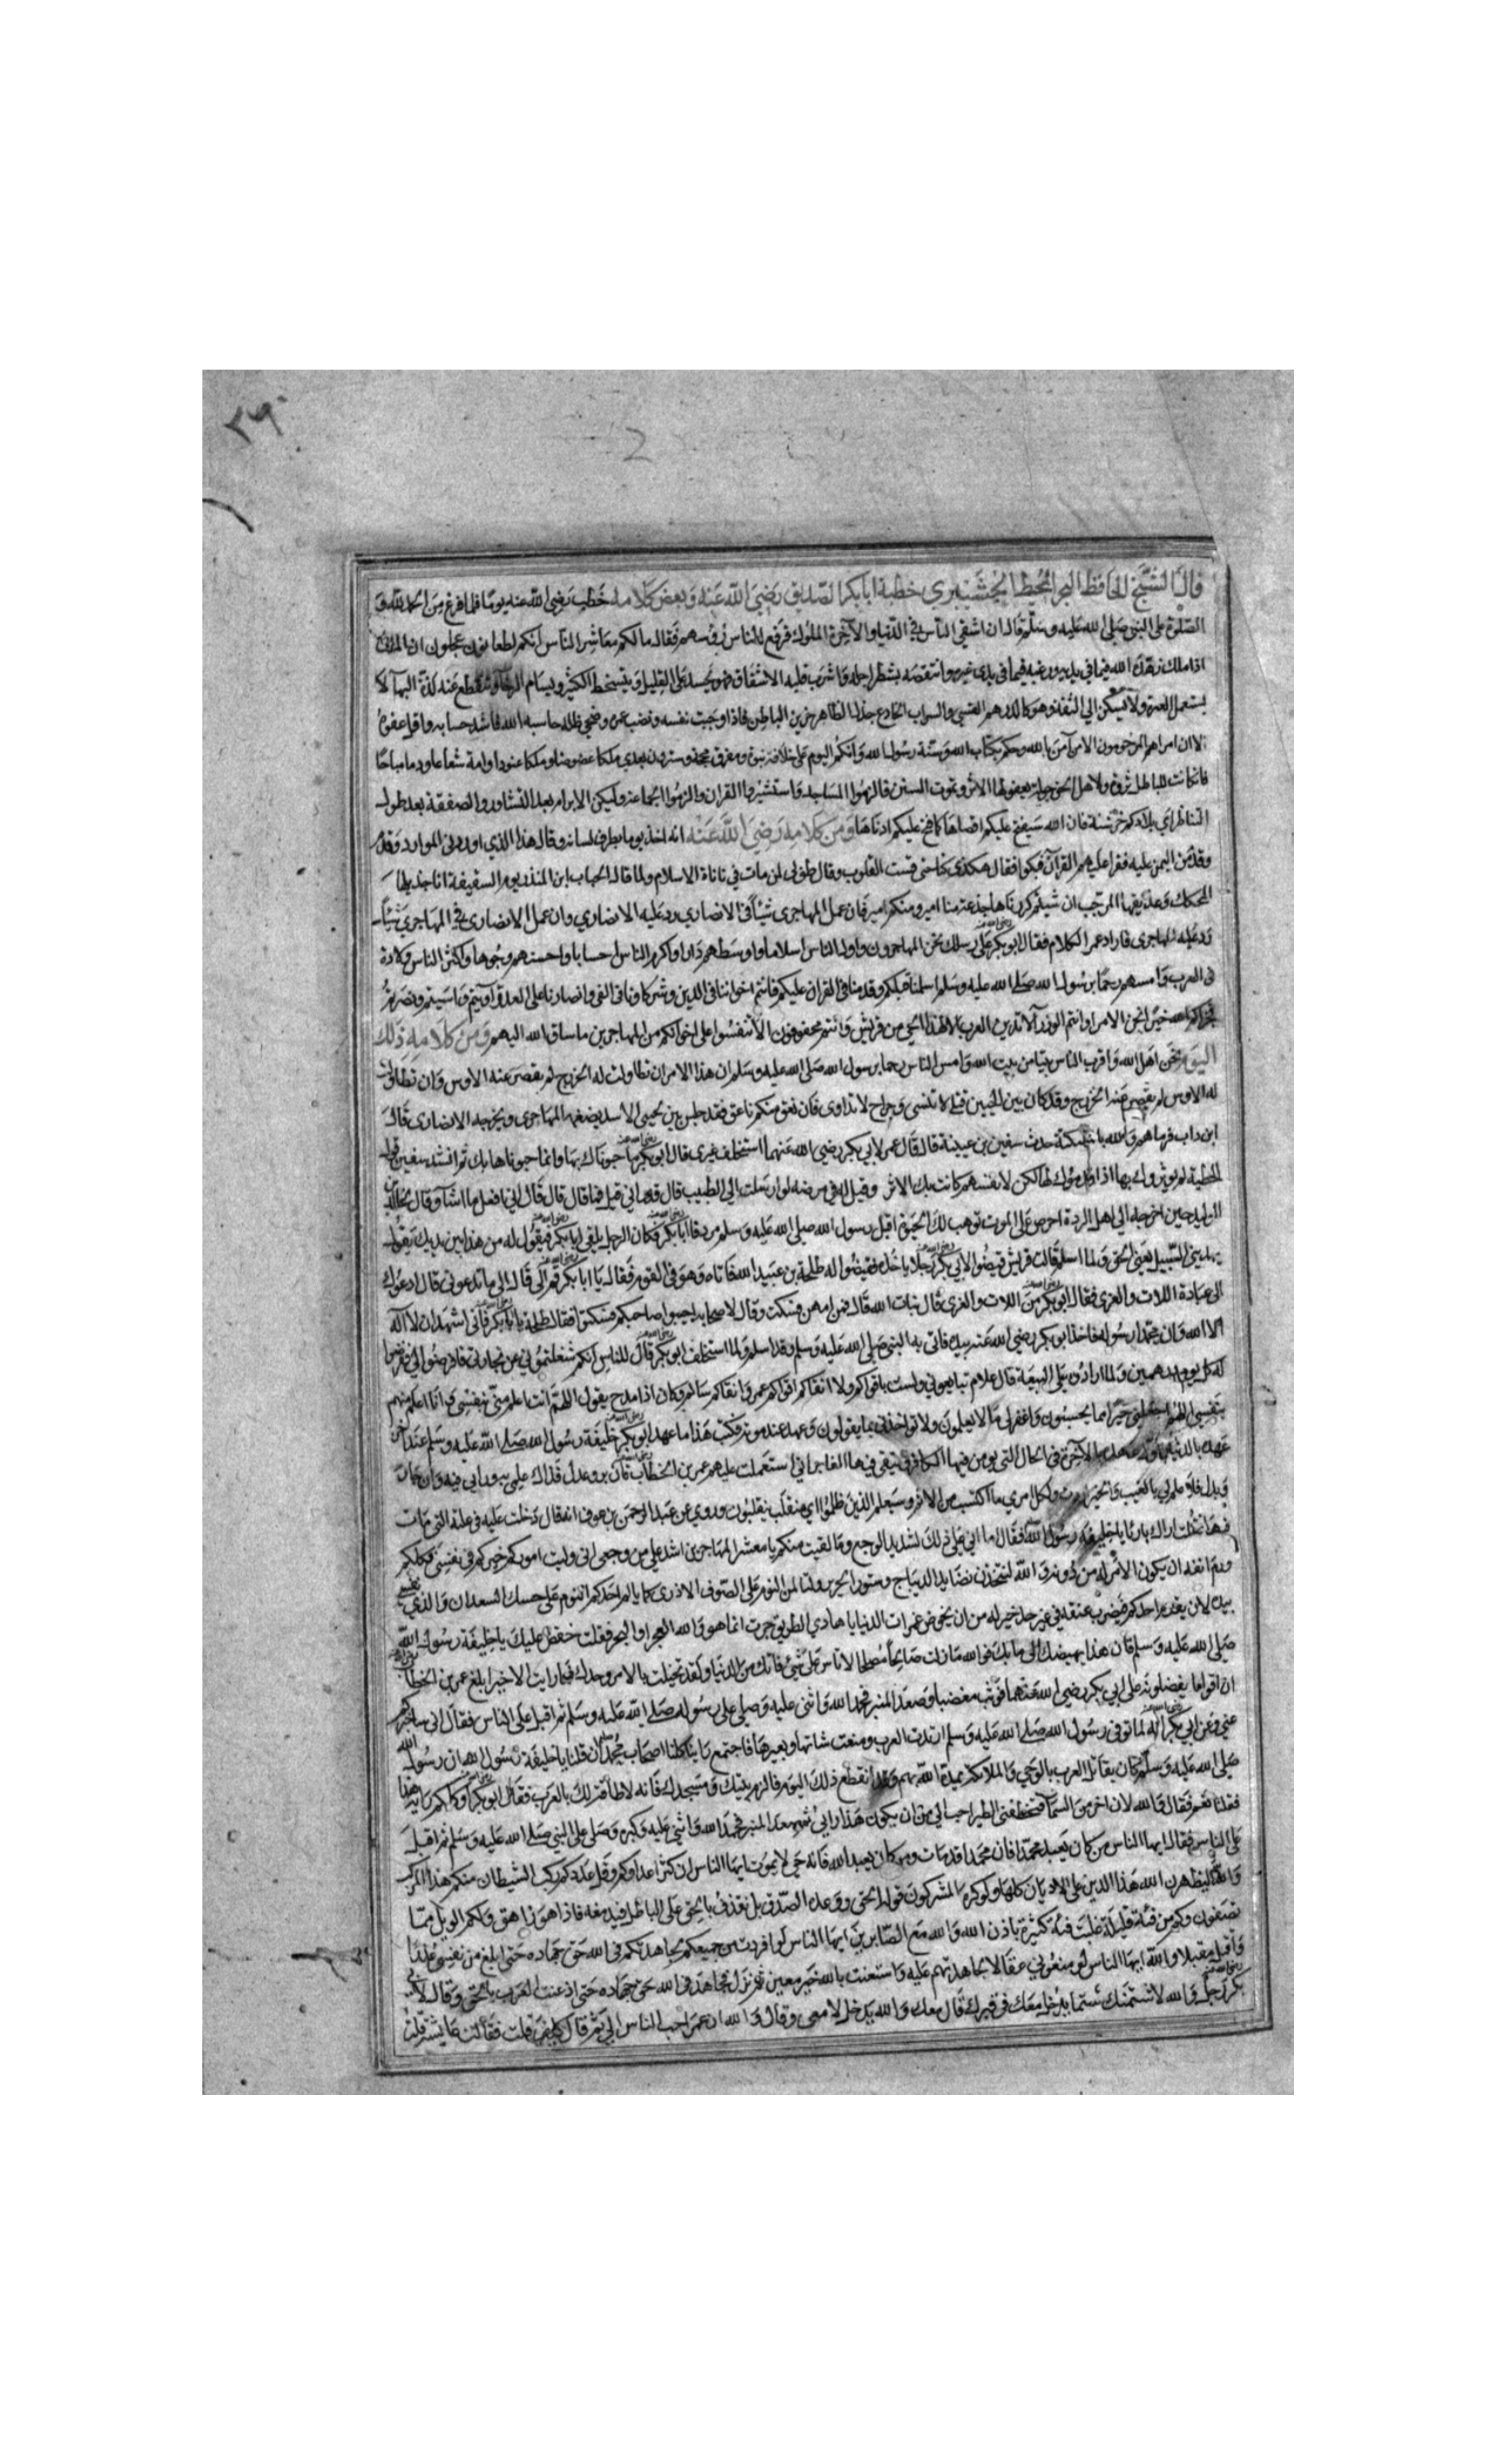 ٢٩
2
قال الشيخ الحافظ البحر المحيط خطبة ابا بكر الصديق رضي الله عنه وبعض كلامه خطب رضي الله عنه يوما فلما فرغ من الحمد لله و
الصلوة على النبي صلى الله عليه وسلم قال ان اشقى الناس في الدنيا والآخرة الملوك فرفع الناس رؤسهم فقال مالكم معاشر الناس انكم لطعانون عجلون ان الملك
اذا ملك زهده الله فيما في يديه ورغبه فيما في يدي غيره وانتقصه بشطر اجله واشرب قلبه الاشفاق فهو يحسد على القليل ويتسخط الكثير ويسام الرخاء وتنقطع عنه لذة البها لا
يستعمل العبرة ولا يسكن الى الثقة وهو كالدرهم القسي والسراب الخادع جذل الظاهر حزين الباطن فاذا وجبت نفسه ونضب عمره وضحى ظله حاسبه الله فاشد حسابه واقل عفوه
الا ان امن بالله وحكم بكتاب الله وسنة رسول الله وانكم اليوم على خلافة نبوة ومفرق محجة وسترون بعدي ملكا عضوضا وملكا عنودا وامة شعاعا ودما مباحا
فان كانت للباطل نزوة ولاهل الحق جولة يعفو لها الاثر وتموت السنن فالزموا المساجد واستشيروا القران والزموا الجماعة وليكن الابرام بعد التشاور والصفقة بعد طول
التناظر اي بلادكم خرشنة فان الله سيفتح عليكم اقصاها كما فتح عليكم ادناها ومن كلامه رضي الله عنه انه اخذ يوما بطرف لسانه وقال هذا الذي اوردني الموارد وقدم
وفد من اليمن عليه فقرا عليهم القران فبكوا فقال هكذى كنا حتى قست القلوب وقال طوبى لمن مات في نانات الاسلام ولما قال الحباب ابن المنذر يوم السقيفة انا جذيلها
المحكك وعذيقها المرجب ان شيتم كررناها جذعة منا امير ومنكم امير فان عمل المهاجرى شيئا في الانصاري رد عليه الانصاري وان عمل الانصارى في المهاجري شيئا
رد عليه المهاجرى فاراد عمر الكلام فقال ابو بكر على رسلك نحن المهاجرون واول الناس اسلاما واوسطهم دارا واكرم الناس احسابا واحسنهم وجوها واكثر الناس ولادة
في العرب وامسهم رحما برسول الله صلى الله عليه وسلم اسلمنا قبلكم وقدمنا في القران عليكم فانتم اخواننا في الدين وشركاونا في الفي وانصارنا على العدو آويتم وآسيتم ونصرتم
فجزاكم الله خيرا نحن الامرا وانتم الوزرا لا تدين العرب الا لهذا الحي من قريش وانتم محقوقون الا تنفسوا على اخوانكم من المهاجرين ما ساق الله اليهم ومن كلامه ذلك
اليوم نحن اهل الله واقرب الناس بيتا من بيت الله وامس الناس رحما برسول الله صلى الله عليه وسلم ان هذا الامر ان تطاولت له الخزرج لم يقصر عنه الاوس وان تطاولت
له الاوس لم يقصر عنه الخزرج وقد كان بين الحيين قتلى لا تنسى وجراح لا تداوى فان نعق منكم ناعق فقد جلس بين لحيي الاسد يضغمه المهاجرى ويجرحه الانصارى قال
ابن داب فرماهم والله حدث سفين بن عيينة قال قال عمر لابي بكر رضي الله عنهما استخلف غيرى قال ابو بكر ما حبوناك بها وانما حبوناها بك ثم انشد سفين قول
الحطية لم يوثروك بها اذا قدموك لها لكن لانفسهم كانت بك الاثر وقيل له في مرضه لو ارسلت الى الطبيب قال قد راني قيل فما قال قال قال اني افعل ما اشا وقال لخالد بن
الوليد حين اخرجه الى اهل الردة احرص على الموت توهب لك الحيوة اقبل رسول الله صلى الله عليه وسلم مردفا ابا بكر فكان الرجل يلقى ابا بكر فيقول له من هذا بين يديك يقول
يهديني السبيل يعني الحق ولما اسلم قالت قريش قيضوا لابي بكر رجلا ياخذه فقيضوا له طلحة بن عبيد الله فاتاه وهو في القوم فقال يا ابا بكر قم الي قال الى ما تدعوني قال ادعوك
الى عبادة اللات والعزى فقال ابو بكر من اللات والعزى قال بنات الله قال فمن امهن فسكت وقال لاصحابه اجيبوا صاحبكم فسكتوا فقال طلحة يا ابا بكر فاني اشهد ان لا اله
الا الله وان محمدا رسوله فاخذ ابو بكر رضي الله عنه بيده فاتى به النبي صلى الله عليه وسلم وقد اسلم ولما استخلف ابو بكر قال للناس انكم شغلتموني عن تجارتي فافرضوا لي ففرضوا
له كل يوم درهمين ولما ارادوه على البيعة قال علام تبايعوني ولست باقواكم ولا اتقاكم اقواكم عمر واتقاكم سالم وكان اذا مدح يقول اللهم انت اعلم مني بنفسي وانا اعلم منهم
بنفسي اللهم اجعلني خيرا مما يحسبون واغفر لي ما لا يعلمون ولا تواخذني بما يقولون وعهد عند موته فكتب هذا ما عهد ابو بكر خليفة رسول الله صلى الله عليه وسلم عند اخر
عهده بالدنيا واول عهده بالآخرة في الحال التي يومن فيها الكافر ويتقي فيها الفاجر اني استعملت عليهم عمر بن الخطاب فان بر وعدل فذلك علمي به ورايي فيه وان جار
وبدل فلا علم لي بالغيب والخير اردت ولكل امري ما اكتسب من الاثم وسيعلم الذين ظلموا اي منقلب ينقلبون وروي عن عبد الرحمن بن عوف انه قال دخلت عليه في علته التي مات
فيها فقلت اراك بارئا يا خليفة رسول الله فقال اما اني على ذلك لشديد الوجع وما لقيت منكم يا معشر المهاجرين اشد علي من وجعى اني وليت اموركم خيركم في نفسي فكلكم
ورم انفه ان يكون الامر له من دونه والله لتتخذن نضايد الديباج وستور الحرير ولتالمن النوم على الصوف الاذرى كما يالم احدكم النوم على حسك السعدان والذي نفسي
بيده لان يقدم احدكم فيضرب عنقه في غير حد خير له من ان يخوض غمرات الدنيا يا هادي الطريق جرت انما هو والله الفجر او البحر فقلت خفض عليك يا خليفة رسول الله
صلى الله عليه وسلم فان هذا يهيضك الى ما بك فوالله ما زلت صالحا مصلحا لا تاس على شئ فاتك من الدنيا ولقد تخليت بالامر وحدك فما رايت الا خيرا بلغ عمر بن الخطاب
ان اقواما يفضلونه على ابي بكر رضي الله عنهما فوثب مغضبا وصعد المنبر فحمد الله واثنى عليه وصلى على رسوله صلى الله عليه وسلم ثم اقبل على الناس فقال اني ساخبركم
عني وعن ابي بكر انه لما توفي رسول الله صلى الله عليه وسلم ارتدت العرب ومنعت شاتها وبعيرها فاجتمع راينا كلنا اصحاب محمد ان قلنا يا خليفة رسول الله ان رسول الله
صلى الله عليه وسلم كان يقاتل العرب بالوحي والملائكة يمده الله بهم وقد انقطع ذلك اليوم فالزم بيتك ومسجدك فانه لا طاقة لك بالعرب فقال ابو بكر اوكلكم رايه هذا
فقلنا نعم فقال والله لان اخر من السما فتخطفني الطير احب الي من ان يكون هذا رايي ثم صعد المنبر فحمد الله واثنى عليه وكبره وصلى على النبي صلى الله عليه وسلم ثم اقبل
على الناس فقال ايها الناس من كان يعبد محمدا فان محمدا قد مات ومن كان يعبد الله فانه حي لا يموت ايها الناس ان كثر اعداوكم وقل عددكم ركب الشيطان منكم هذا المركب
والله ليظهرن الله هذا الدين على الاديان كلها ولو كره المشركون قوله الحق ووعده الصدق بل نقذف بالحق على الباطل فيدمغه فاذا هو زاهق ولكم الويل مما
تصفون وكم من فئة قليلة غلبت فئة كثيرة باذن الله والله مع الصابرين ايها الناس لو افردت من جميعكم لجاهدتكم في الله حق جهاده حتى ابلغ من نفسي عذرا
والله ايها الناس لو منعوني عقالا لجاهدتهم عليه واستعنت بالله خير معين ثم نزل فجاهد في الله حق جهاده حتى اذعنت العرب بالحق وقال لابي
بكر رجل والله لاشتمنك شتما يدخل معك في قبرك قال معك والله يدخل لا معى وقال والله ان عمر احب الناس الي ثم قال كيف قلت فقالت عايشة قلت